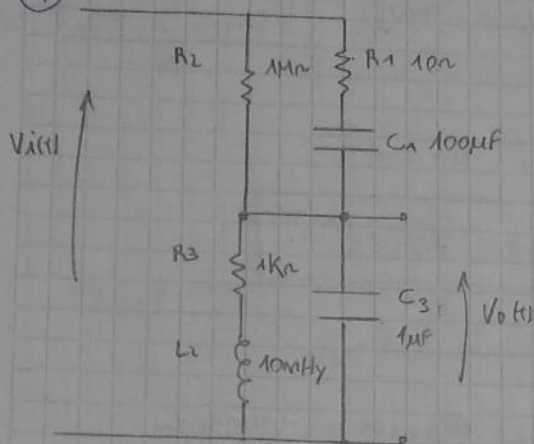 R2 1MΩ R1 10Ω
Vi(t)
C1 100µF
R3 1KΩ
C3
1µF
Vo(t)
L2 10mHy